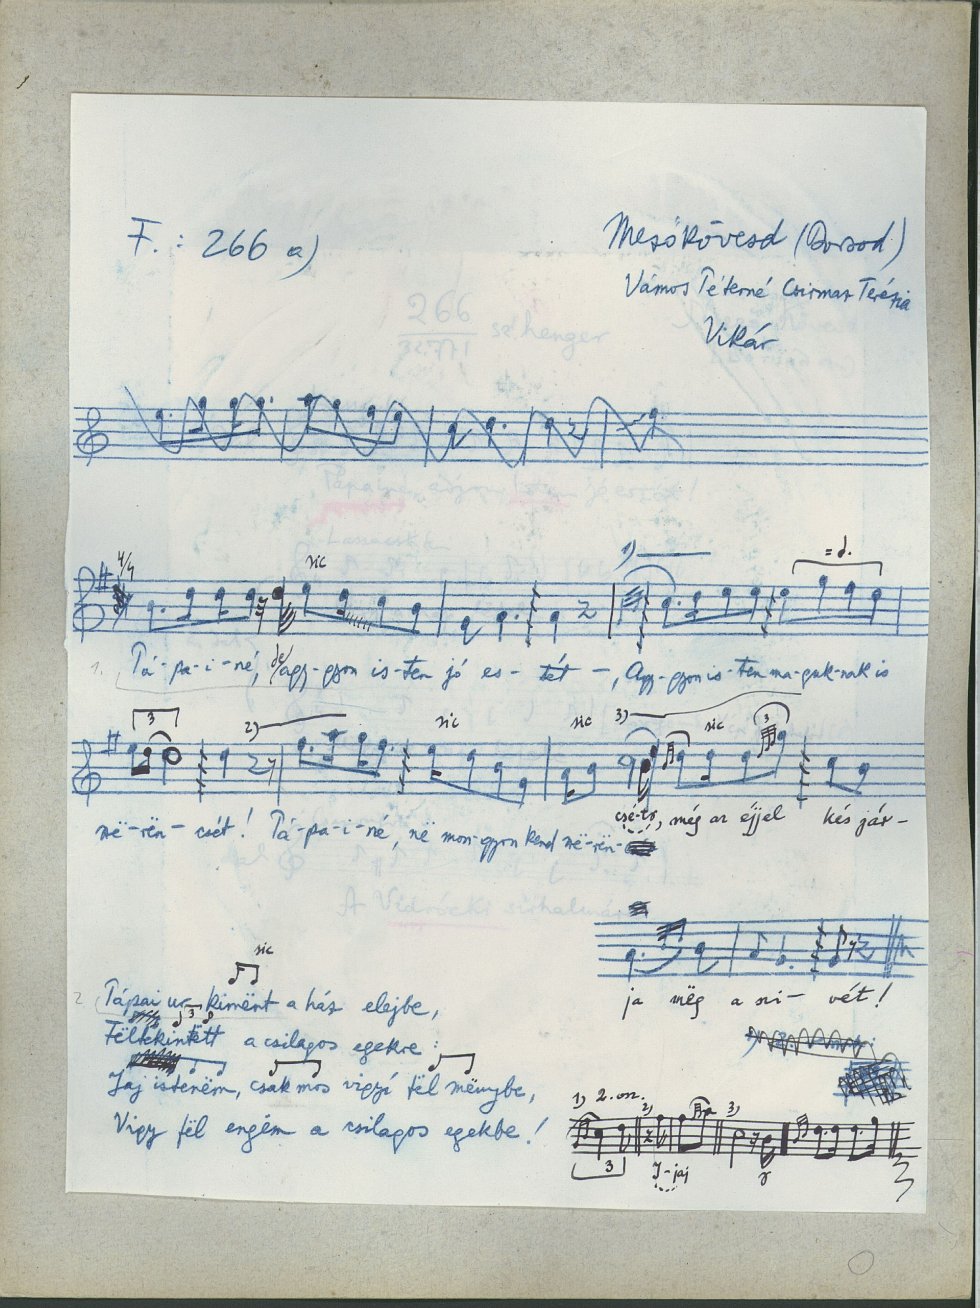 F.: 266 a)
Mezőkövesd (Borsod)
Vámos Péterné Csirmaz Terézia
Vikár
266
szé henger
4/4
sic
1)
= d.
1. Pá-pa-i-né, de aggy-gyon is-ten jó es-tét –, Aggy-gyon is-ten ma-guk-nak is
3
2)
sic
sic
3)
sic
3
në-rën-csét! Pá-pa-i-né, në mon-gyon kend në-rën-
csé-tö, még az éjjel kés jár-
ja mëg a szi-vét!
sic
2. Pápai ur kimënt a ház elejbe,
3
Feltekintëtt a csilagos egekre:
Jaj istenëm, csak mos vigyí fël mënybe,
Vigy fël engëm a csilagos egekbe!
1) 2. vsz. 2) 3)
3
J-jaj
A Vidrócki